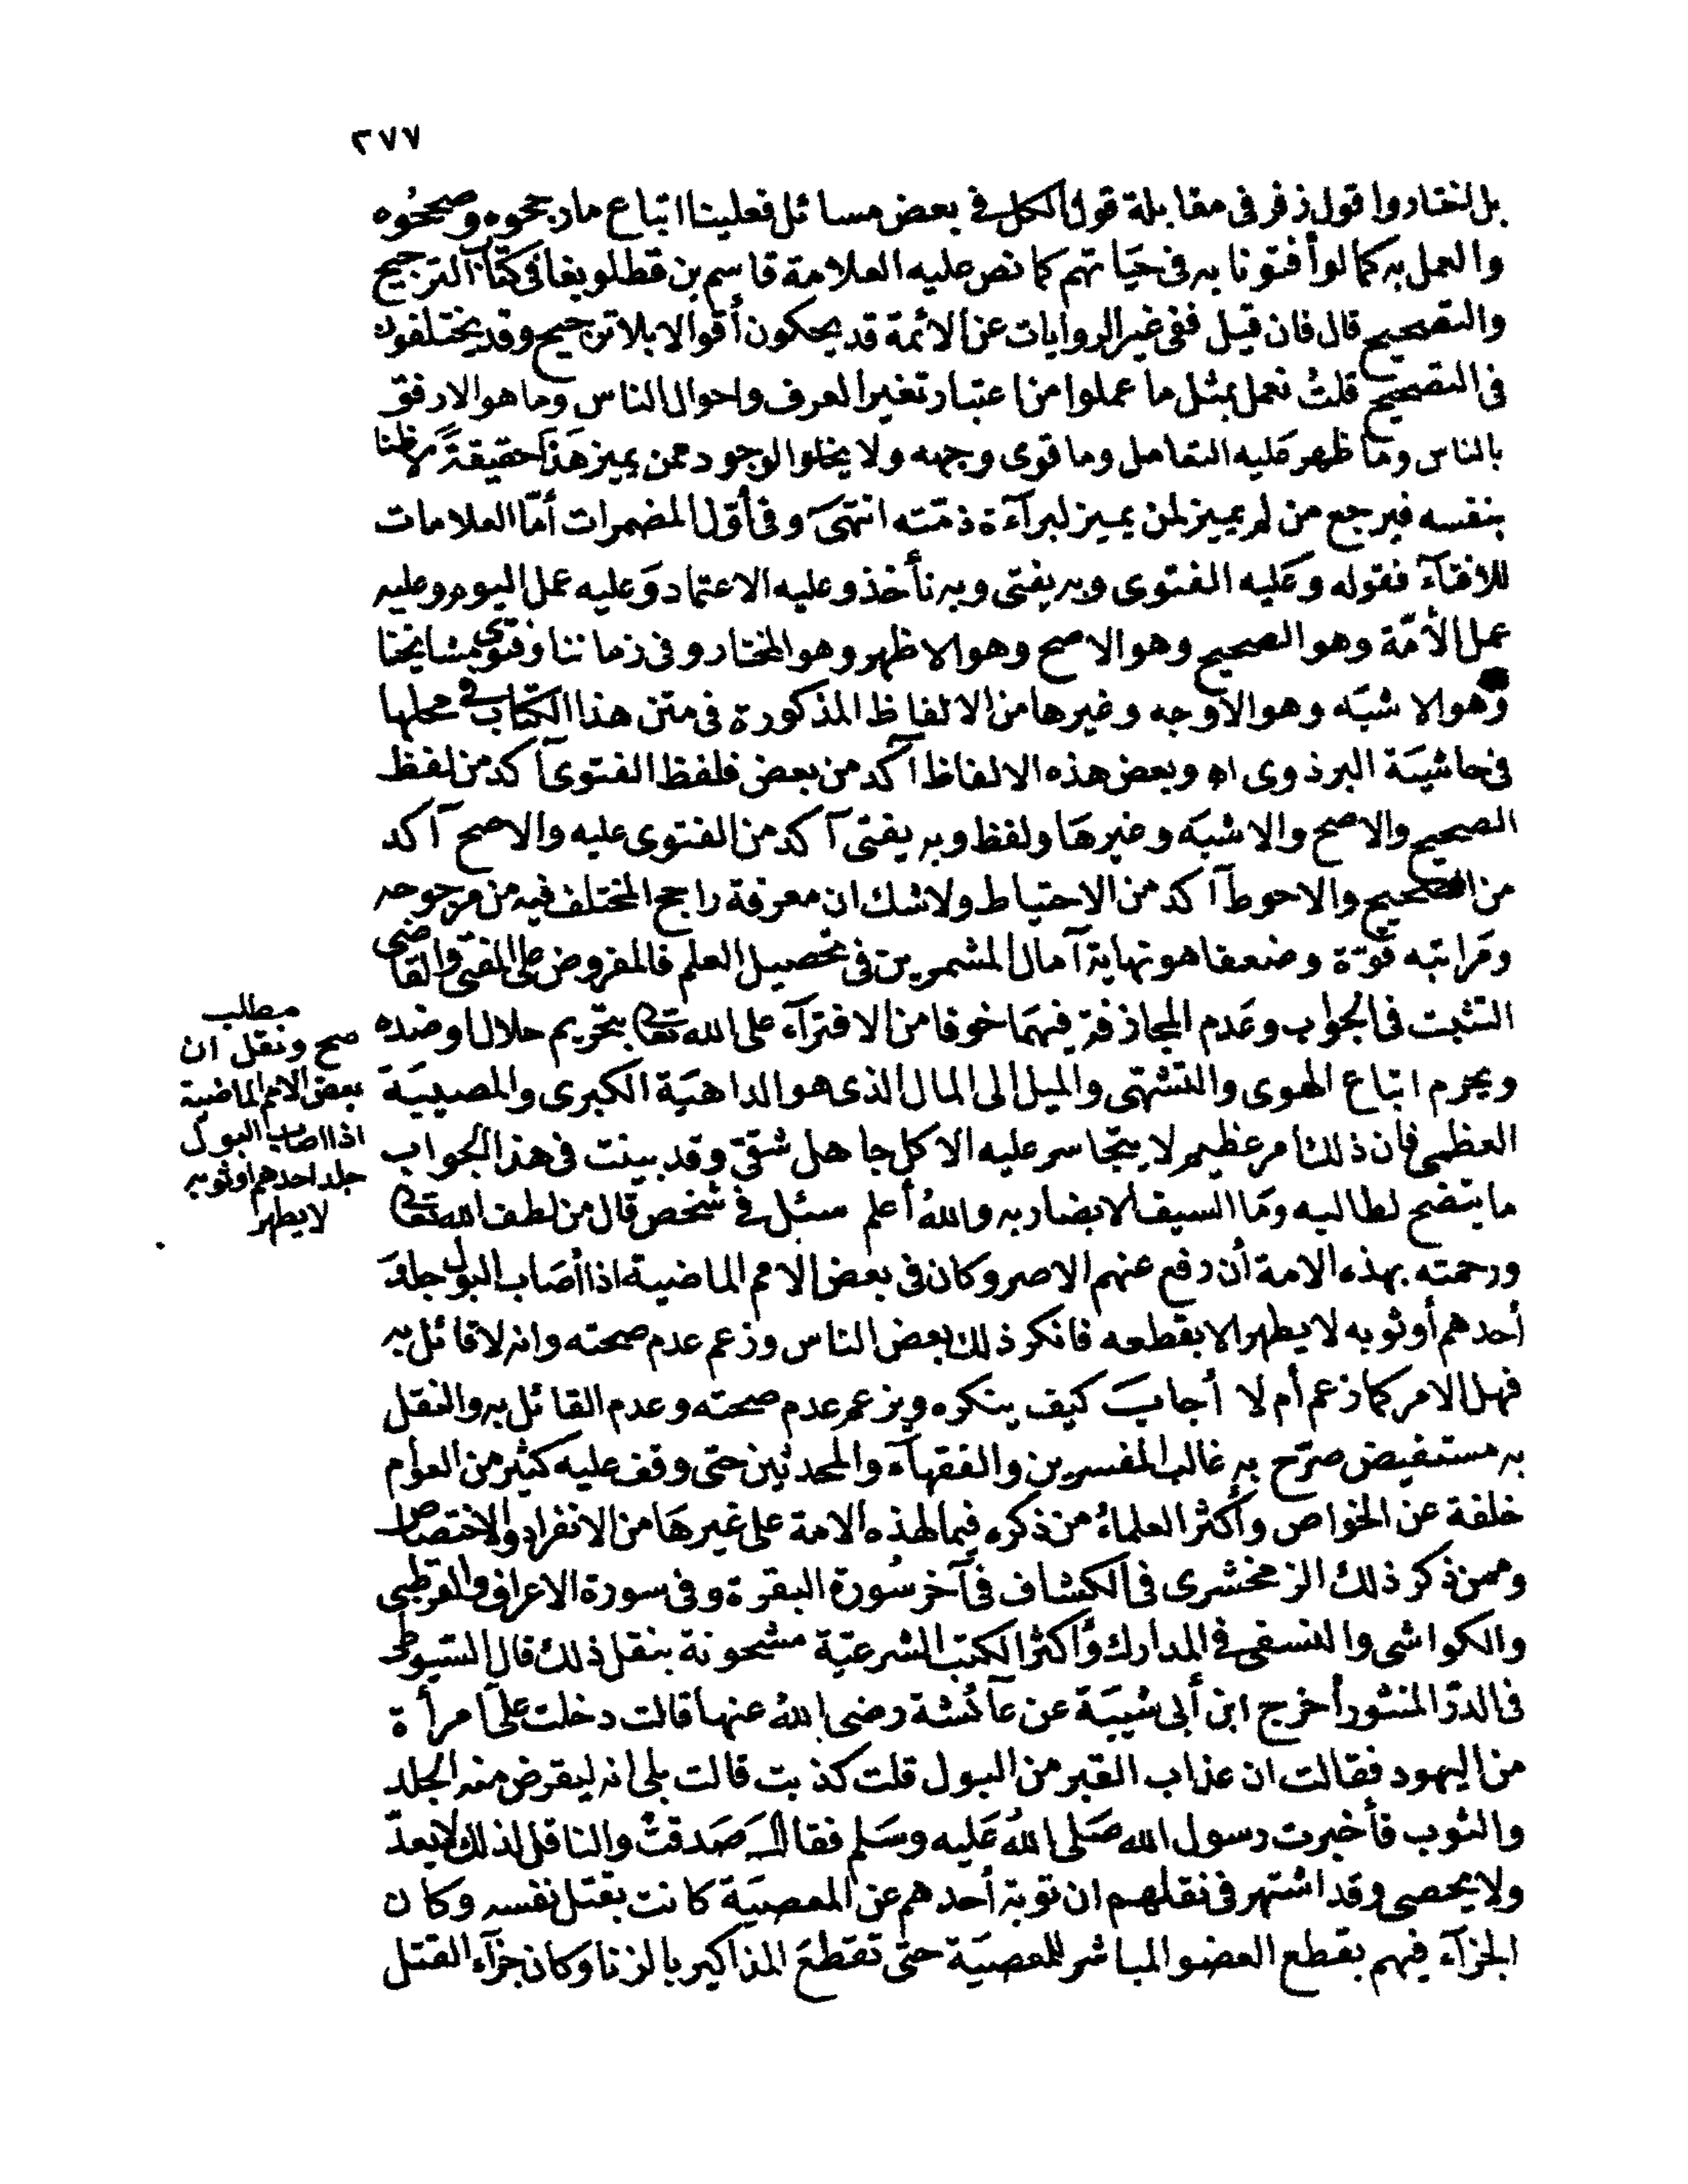 ٢٧٧
بل اختاروا قول زفر فى مقابلة قول الكل فى بعض مسائل فعلينا اتباع مارجحوه وصححوه
والعمل به كما لوأفتونا به فى حيَاتهم كما نص عليه العلامة قاسم بن قطلوبغا فى كتاب الترجيح
والتصحيح قال فان قيل ففى غير الروايات عن الائمة قد يحكون أقوالا بلا ترجيح وقد يختلفون
فى التصحيح قلتُ نعمل بمثل ما عملوا من اعتبار تغير العرف واحوال الناس وما هو الارفق
بالناس وما ظهر عَليه التعامل وما قوى وجهه ولا يخلوا لوجود عمن يميز هَذَا حقيقةً لا ظنا
بنفسه فيرجع من لم يميز لمن يميز لبرآءة ذمّته انتهىَ وفى أوّل المضمرات أمّا العلامات
للافتآء فقوله وعَليه الفتوى وبه يفتى وبه نأخذ وعليه الاعتماد وَعليه عمل اليوم وعليه
عمل الأمّة وهو الصحيح وهو الاصح وهو الاظهر وهو المختار وفى زماننا وفتوى مشايخنا
وهو الاشبَه وهو الاوجه وغيرها من الالفاظ المذكورة فى متن هذا الكتاب فى محلها
فى حاشيَة البزذوى اه وبعض هذه الالفاظ آكد من بعض فلفظ الفتوى آكد من لفظ
الصحيح والاصح والاشبَه وغيرهَا ولفظ وبه يفتى آكد من الفتوى عليه والاصح آكد
من الصحيح والاحوط آكد من الاحتياط ولاشك ان معرفة راجح المختلف فيه من مرجوحه
ومَراتبه قوّة وضعفا هو نهاية آمال المشمرين فى تحصيل العلم فالمفروض على المفتى والقاضى
التثبت فى الجواب وعَدم المجازفة فيهمَا خوفا من الافترآء على الله تعالى بتحريم حلال او ضده
ويحرم اتباع الهوى والتشهى والميل الى المال الذى هو الداهيَة الكبرى والمصيبَة
العظمى فان ذلك أمر عظيم لا يتجاسر عليه الا كل جاهل شقىّ وقد بينت فى هذا الجواب
ما يتضح لطالبيه ومَا السيف الا بضاربه واللهُ أعلم سئل فى شخص قال من لطف الله تعالى
ورحمته بهذه الامة أن رفع عنهم الاصر وكان فى بعض الامم الماضية اذا أصَاب البول جلدَ
أحدهم أو ثوبه لا يطهر الا بقطعه فانكر ذلك بعض الناس وزعم عدم صحته وانه لا قائل به
فهل الامر كما زعم أم لا أجابَ كيف ينكره ويزعم عدم صحته وعدم القائل به والنقل
به مستفيض صرّح به غالب المفسرين والفقهآء والمحدثين حتى وقف عليه كثير من العوام
خلفة عن الخواص وأكثر العلماءُ من ذكره فيما لهذه الامة على غيرهَا من الانفراد والاختصاص
وممن ذكر ذلك الزمخشرى فى الكشاف فى آخر سُورة البقرة وفى سورة الاعراف والقرطبى
والكواشى والنسفى فى المدارك وأكثر الكتب الشرعيّة مشحونة بنقل ذلك قال السّيوطى
فى الدرّ المنثور أخرج ابن أبى شيبَة عن عآئشة رضى اللهُ عنها قالت دخلت علىّ امرأة
من اليهود فقالت ان عذاب القبر من البول قلت كذبت قالت بلى انه ليقرض منه الجلد
والثوب فأخبرت رسول الله صَلى اللهُ عَليه وسَلم فقالَ صَدقتْ والناقل لذلك لا يعدّ
ولا يحصى وقد اشتهر فى نقلهم ان توبة أحدهم عن المعصيَة كانت بقتل نفسه وكان
الجزآء فيهم بقطع العضو المباشر للمعصيَة حتى تقطعَ المذاكير بالزنا وكان جزآء القتل
مطلب
صح ونقل ان
بعض الامم الماضية
اذا اصاب البول
جلد احدهم او ثوبه
لا يطهر